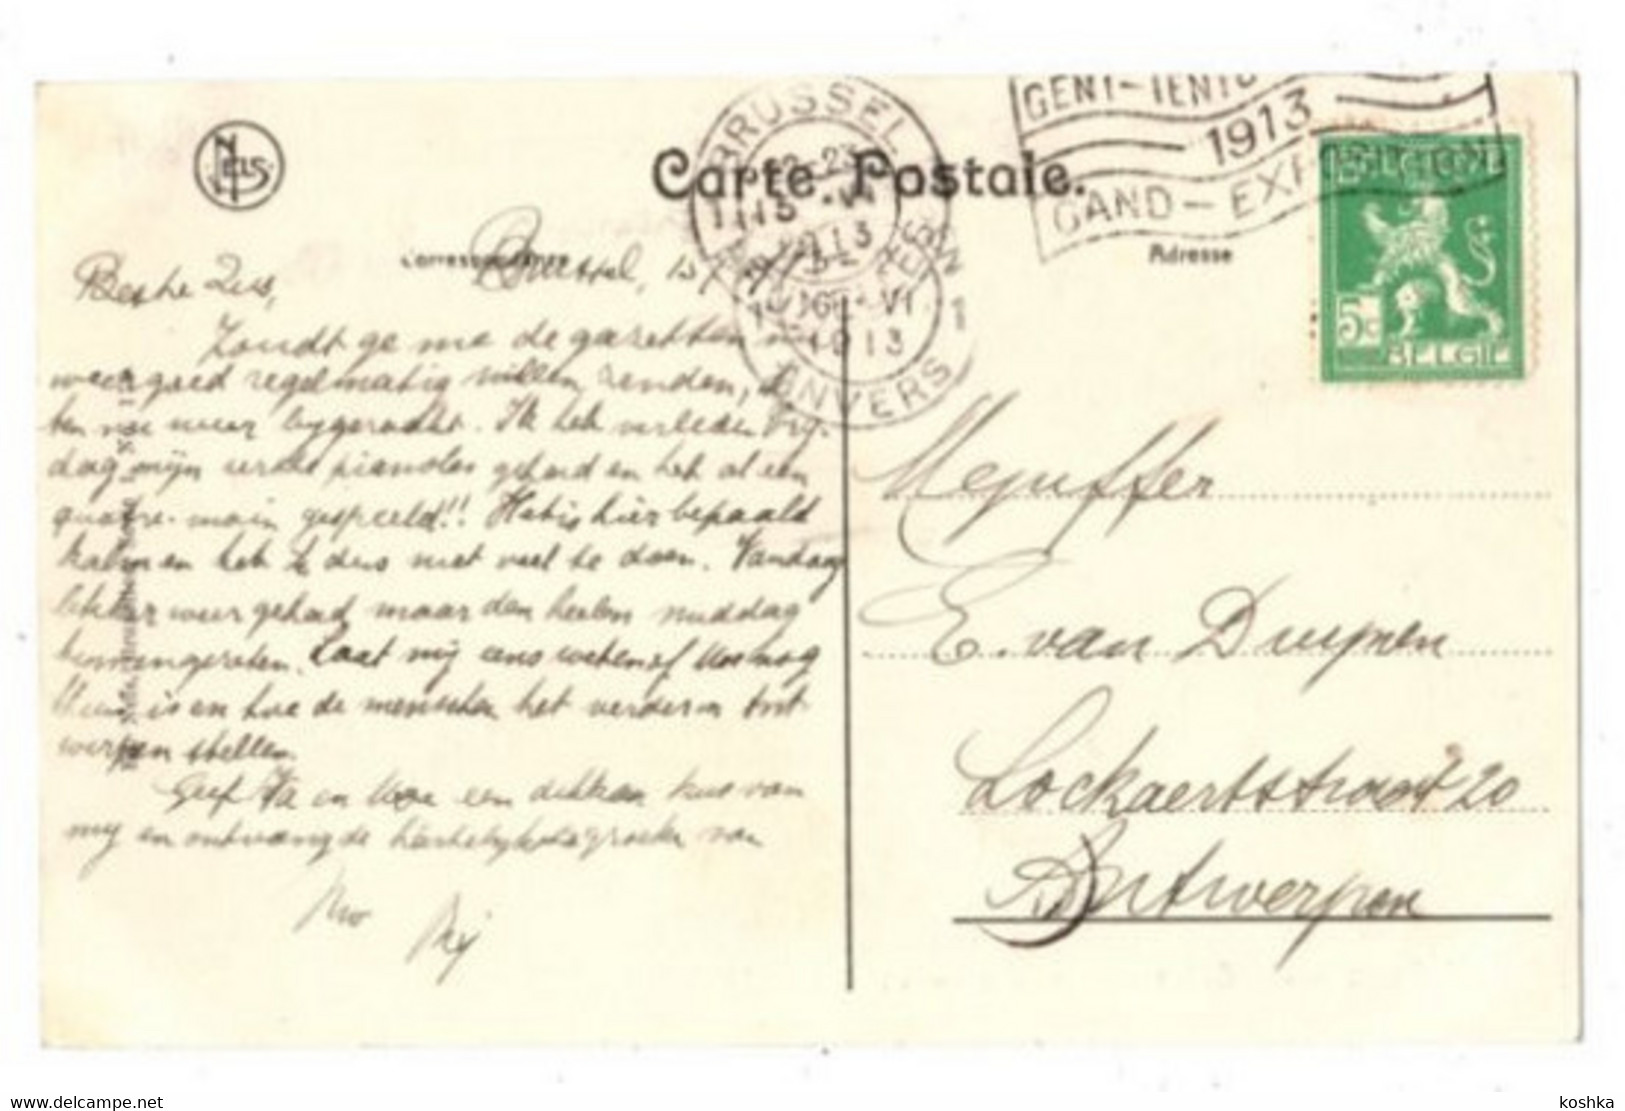 NELS
Carte Postale.
Correspondance
Adresse
BRUSSEL
1913
ANVERS
VI
1913
GENT-TENTO
1913
GAND-EXPOSITION
BELGIQUE
5c
BELGIË
Brussel, 15
Beste Zus,
Zoudt ge me de gazetten nu
weer goed regelmatig willen zenden, ik
ben nu weer bijgeraakt. Ik heb verleden Vrij-
dag mijn eerste pianoles gehad en heb al een
quatre-main gespeeld!! Het is hier bepaald
kalm en heb dus niet veel te doen. Vandaag
lekker weer gehad maar den heelen middag
binnengezeten. Laat mij eens weten of nog
thuis is en hoe de menschen het verder in Ant
werpen stellen.
Geef Pa en Moe een dikken kus van
mij en ontvang de hartelijkste groeten van
Mejuffer
E. van Duynen
Lockaertstraat 20
Antwerpen
delcampe.net
koshka